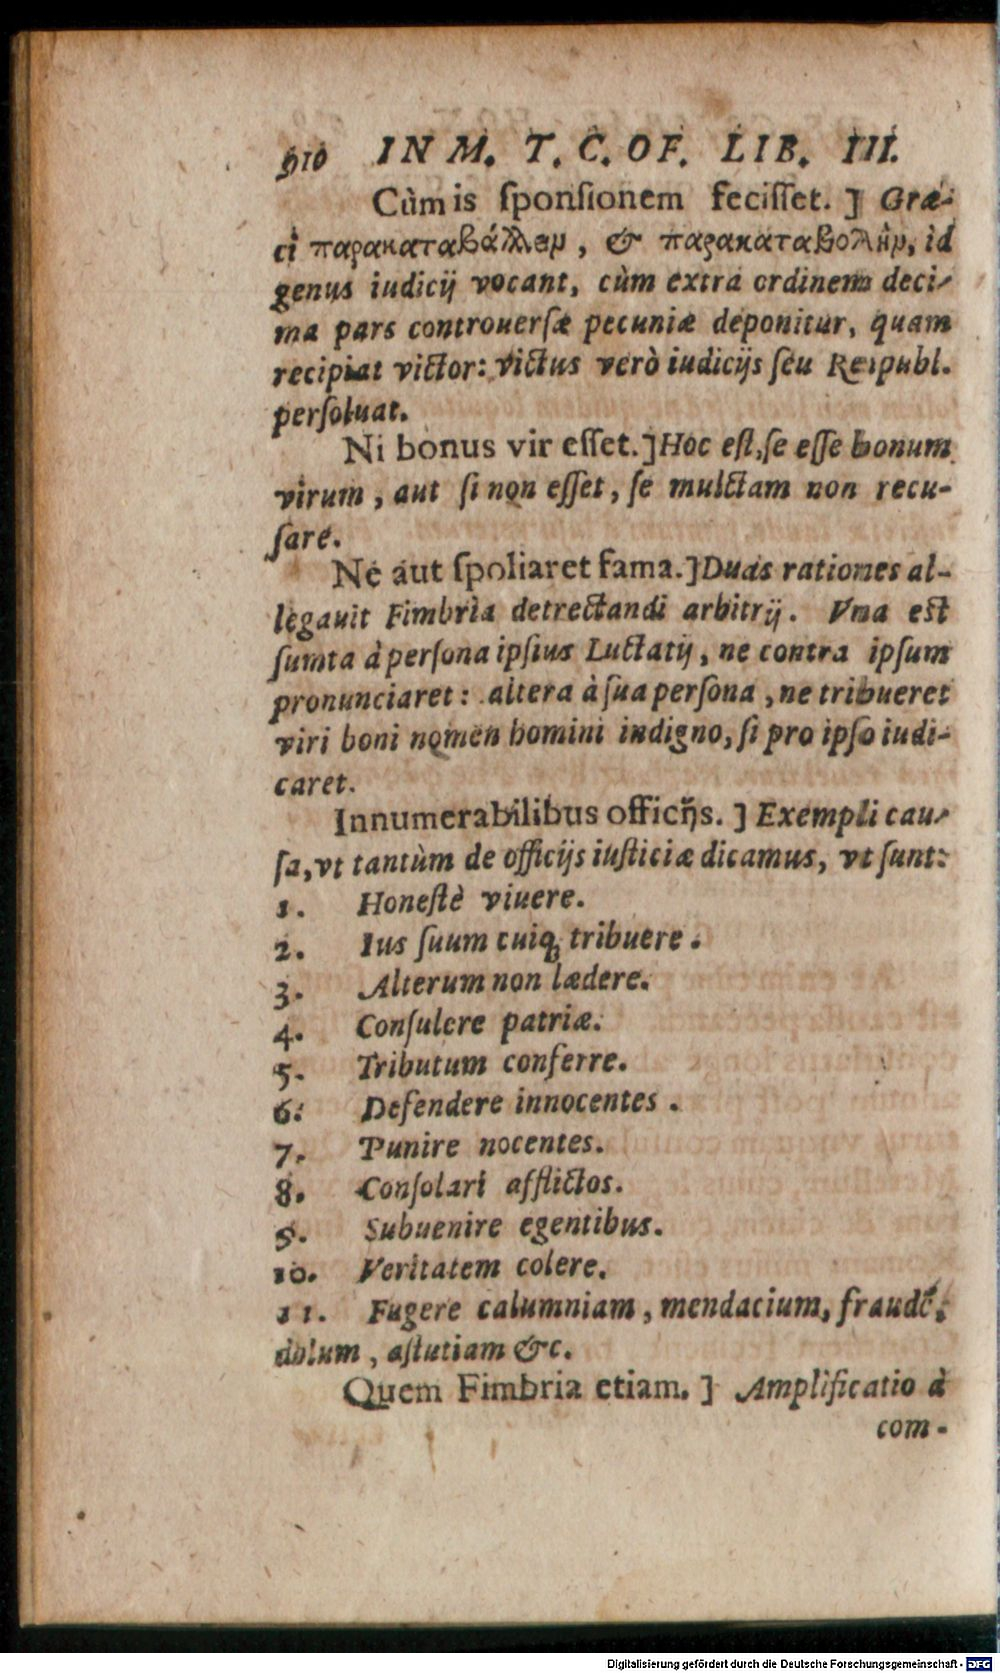 910 IN M. T. C. OF. LIB. III.
Cùm is ſponſionem feciſſet. ] Græ-
ci παρακαταβάλλειν, & παρακαταβολὴν, id
genus iudicij vocant, cùm extra ordinem deci-
ma pars controuerſæ pecuniæ deponitur, quam
recipiat victor: victus verò iudicijs ſeu Reipubl.
perſoluat.
Ni bonus vir eſſet.] Hoc eſt, ſe eſſe bonum
virum, aut ſi non eſſet, ſe mulctam non recu-
ſare.
Ne aut ſpoliaret fama.] Duas rationes al-
legauit Fimbria detrectandi arbitrij. Vna eſt
ſumta à perſona ipſius Luctatij, ne contra ipſum
pronunciaret: altera à ſua perſona, ne tribueret
viri boni nomen homini indigno, ſi pro ipſo iudi-
caret.
Innumerabilibus officijs. ] Exempli cau-
ſa, vt tantùm de officijs iuſticiæ dicamus, vt ſunt:
1. Honeſtè viuere.
2. Ius ſuum cuiq; tribuere.
3. Alterum non lædere.
4. Conſulere patriæ.
5. Tributum conferre.
6. Defendere innocentes.
7. Punire nocentes.
8. Conſolari afflictos.
9. Subuenire egentibus.
10. Veritatem colere.
11. Fugere calumniam, mendacium, fraudē,
dolum, aſtutiam &c.
Quem Fimbria etiam. ] Amplificatio à
com-
Digitalisierung gefördert durch die Deutsche Forschungsgemeinschaft - DFG